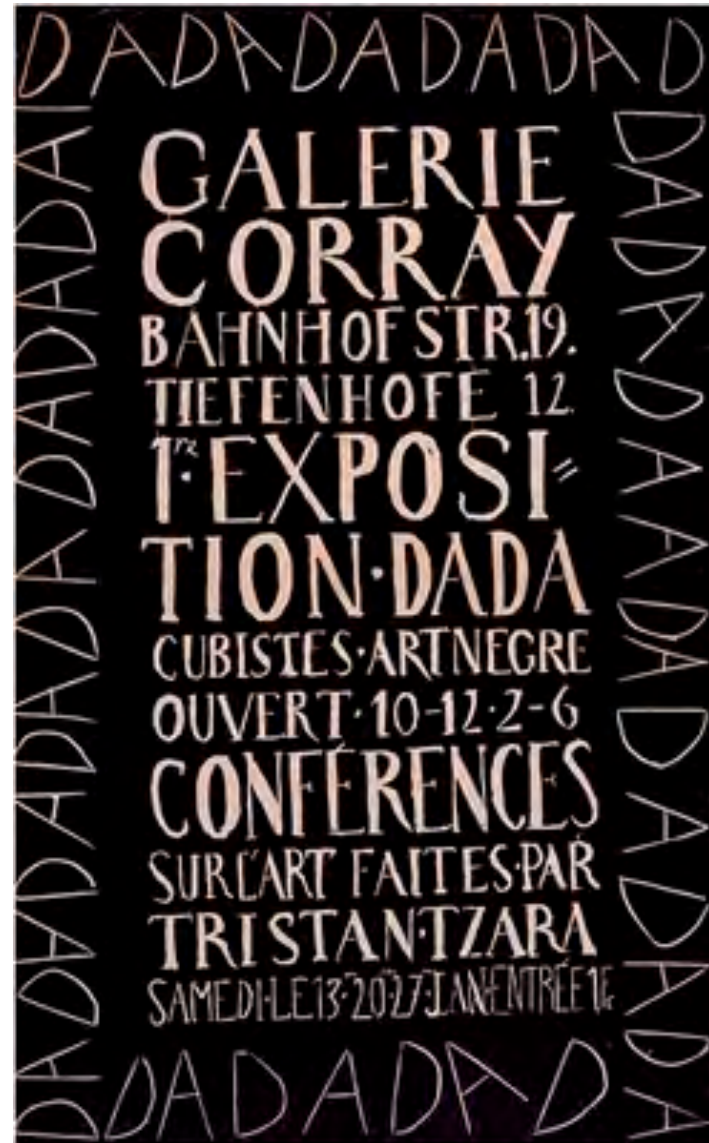 DADADADADAD
GALERIE
CORRAY
BAHNHOFSTR.19.
TIEFENHOFE 12.
1re. EXPOSI=
TION·DADA
CUBISTES·ART NEGRE
OUVERT·10-12·2-6
CONFÉRENCES
SUR L'ART FAITES·PAR
TRISTAN·TZARA
SAMEDI·LE 13·20·27·JAN·ENTRÉE 1fr
DADADADADADADADADAD
DADADAADADADADADA
DADADAD